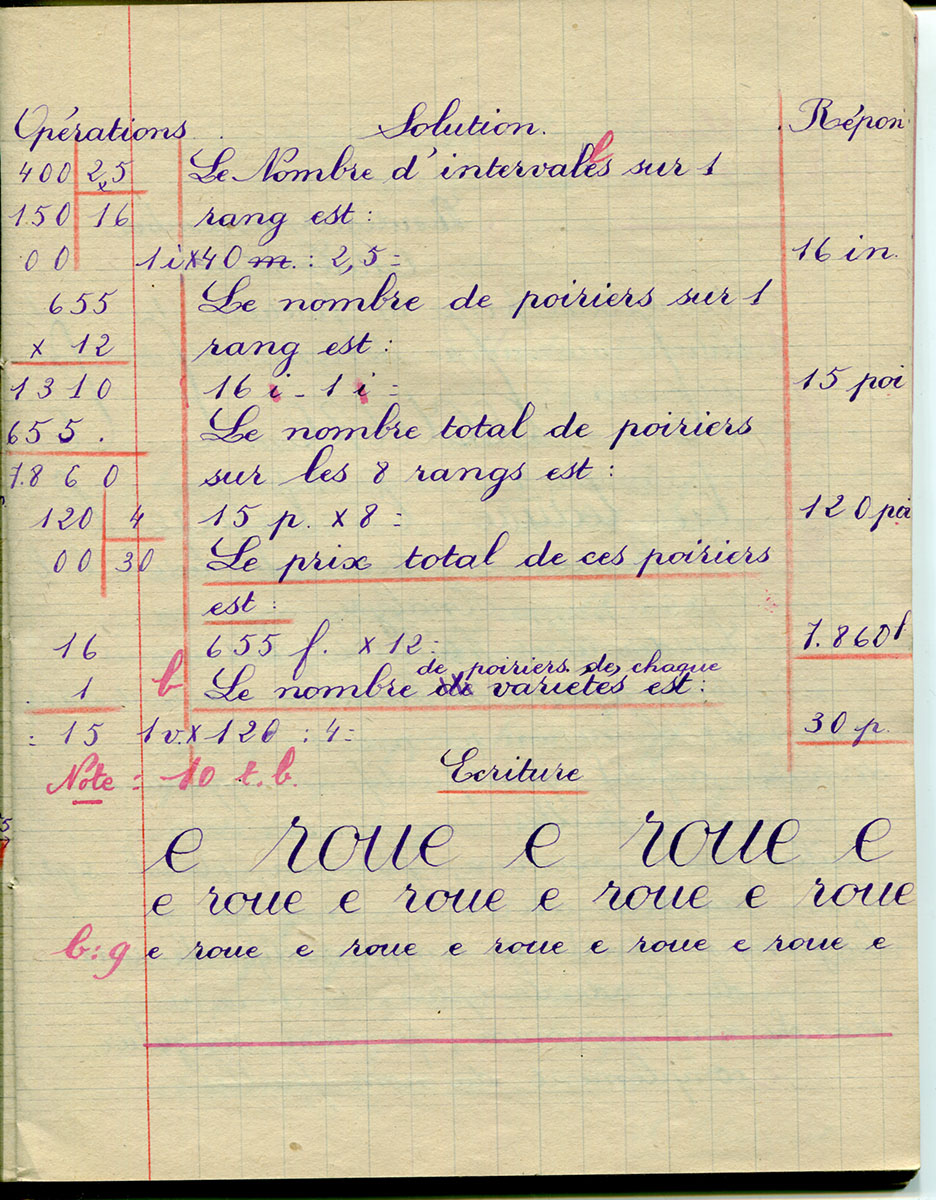 Opérations Solution. Répon
400 2,5 Le Nombre d'intervales sur 1
l
150 16 rang est:
00 1i×40 m. : 2,5= 16 in.
655 Le nombre de poiriers sur 1
× 12 rang est:
1310 16 i - 1 i = 15 poi
655 . Le nombre total de poiriers
7.860 sur les 8 rangs est:
120 4 15 p. ×8= 120 poi
00 30 Le prix total de ces poiriers
est:
16 655 f. ×12= 7.860f
de poiriers de chaque
1 b Le nombre variétés est:
= 15 1v.×120 : 4= 30 p.
Note : 10 t.b. Ecriture
e roue e roue e
e roue e roue e roue e roue
b:9 e roue e roue e roue e roue e roue e